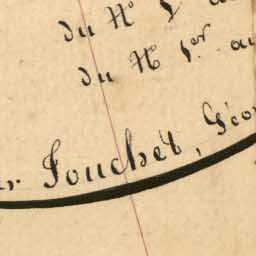 du Nº 1
du Nº 1er. au
Fouchet, Géo